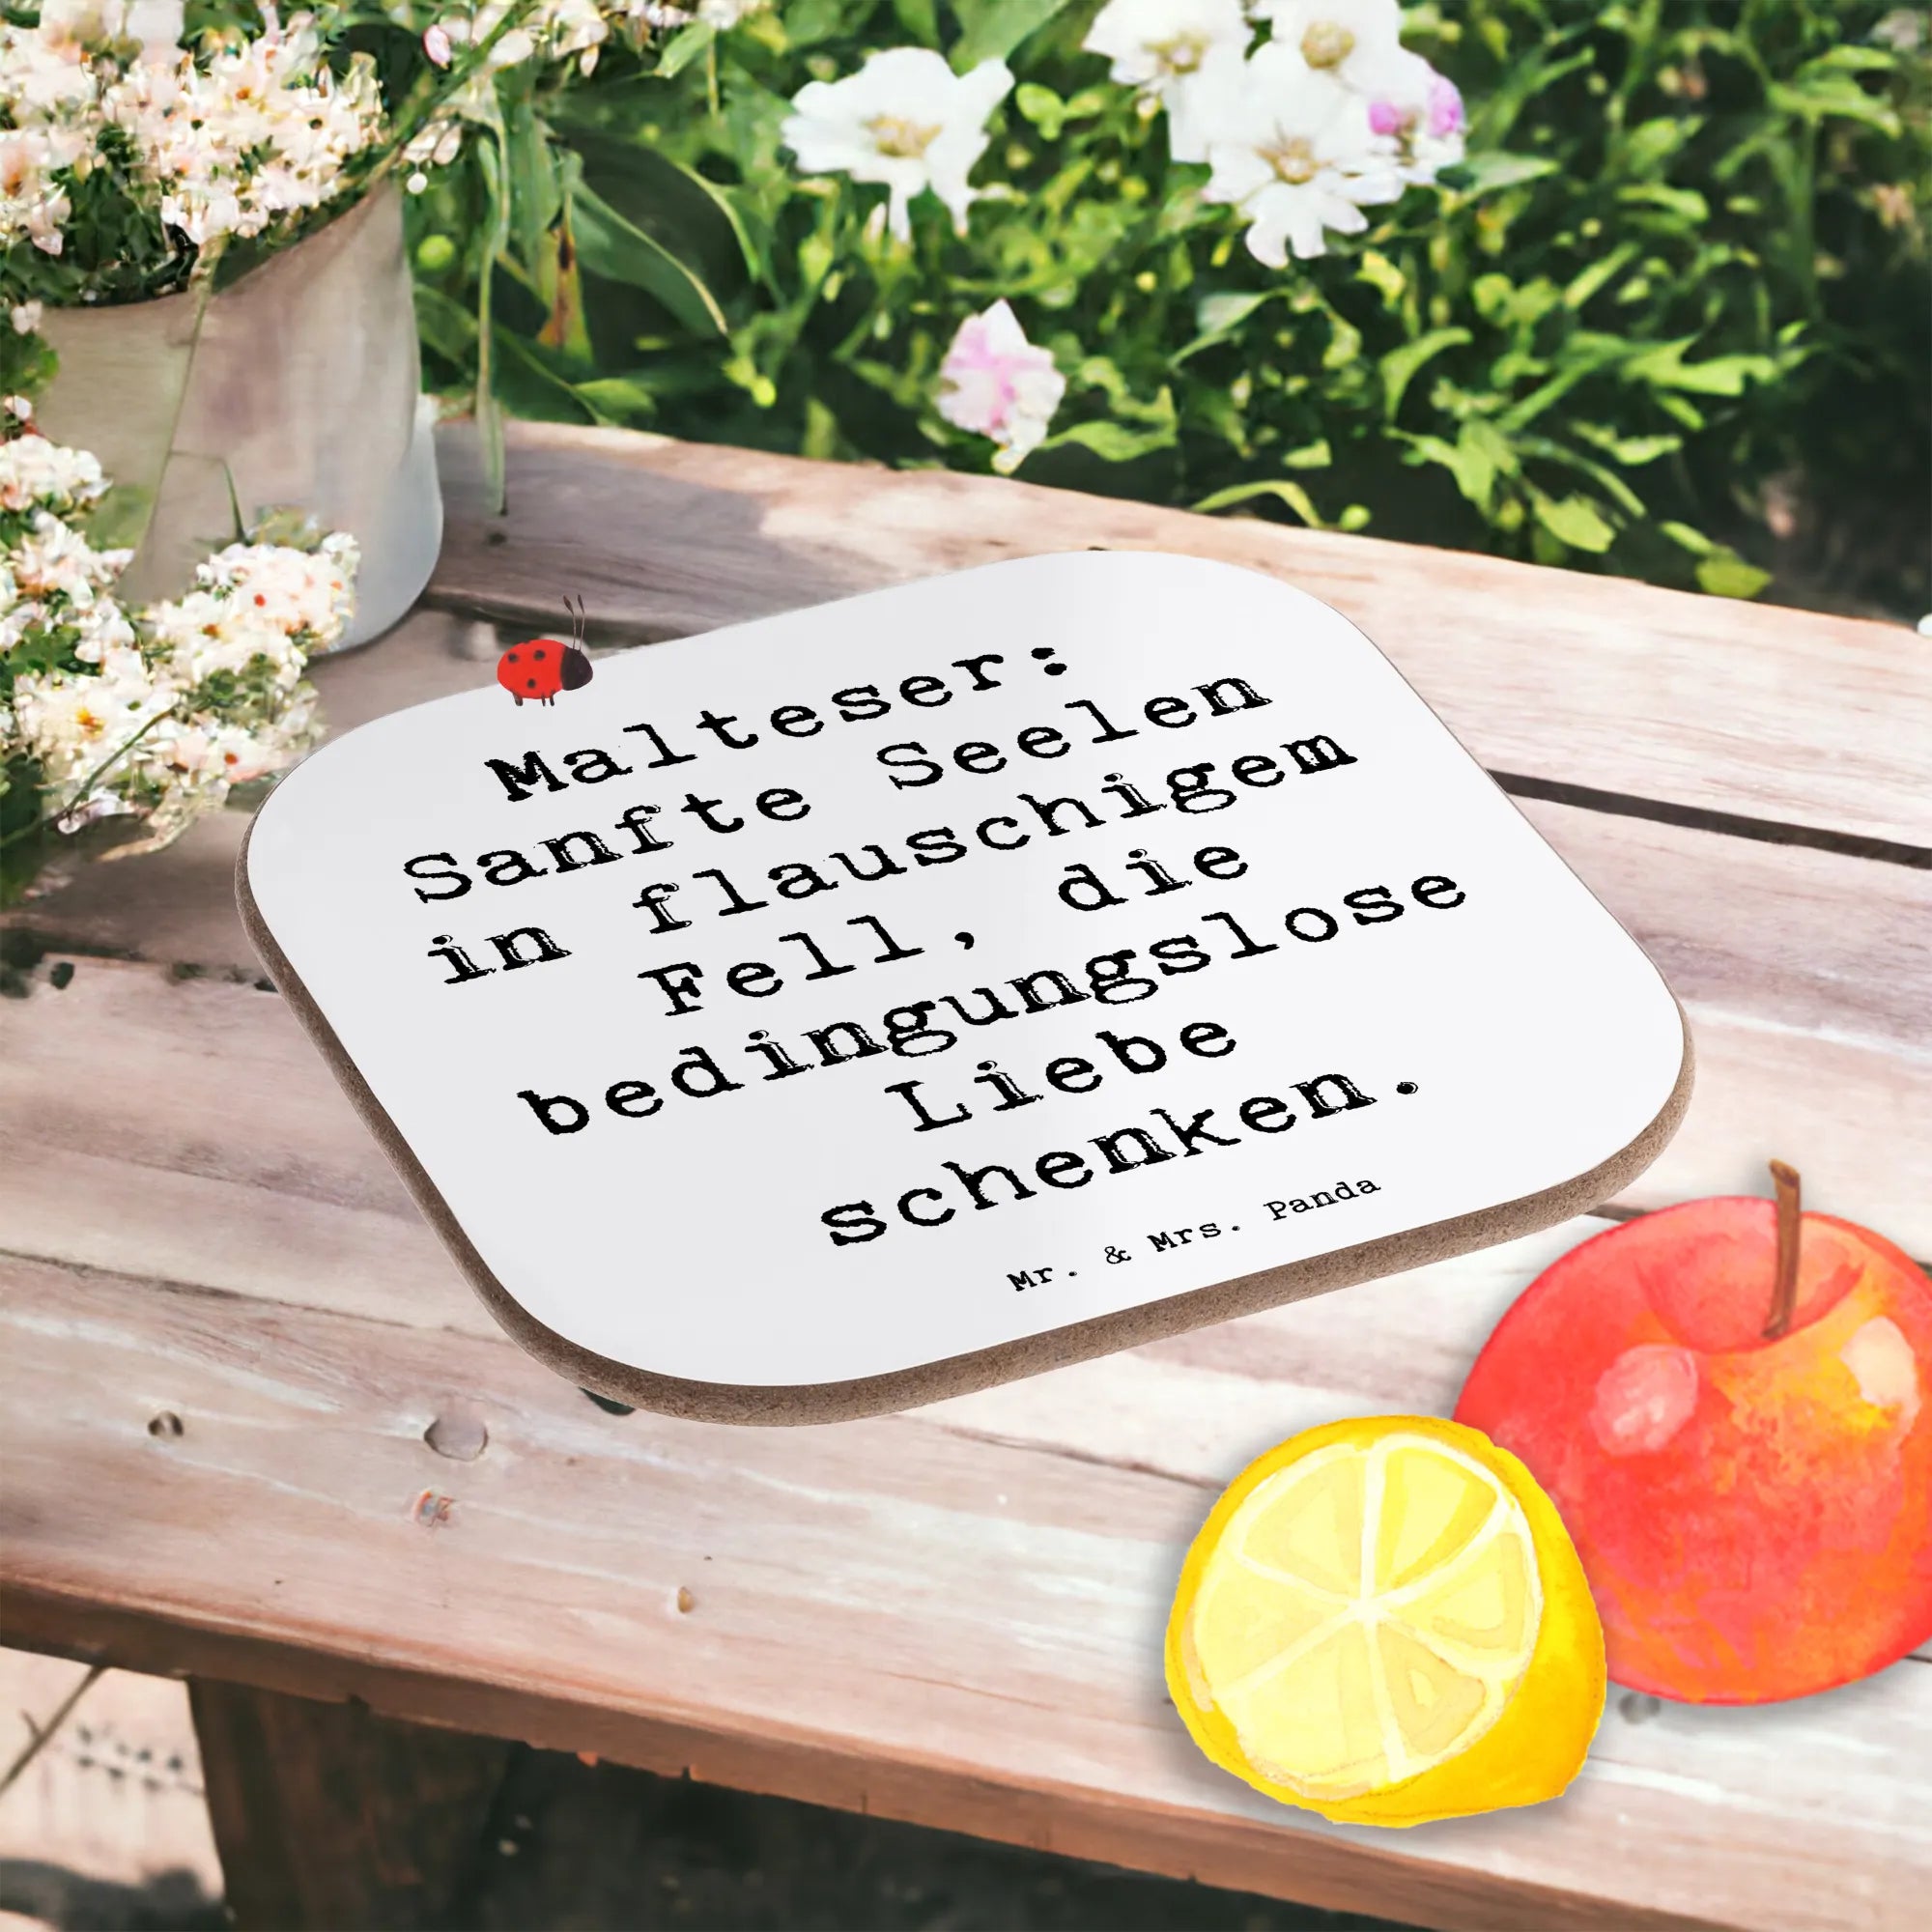 Malteser:
Sanfte Seelen
in flauschigem
Fell, die
bedingungslose
Liebe
schenken.
Mr. & Mrs. Panda